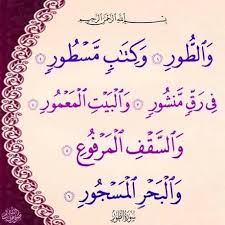 بِسْمِ اللَّهِ الرَّحْمَٰنِ الرَّحِيمِ
وَالطُّورِ ١ وَكِتَابٍ مَّسْطُورٍ ٢
فِي رَقٍّ مَّنشُورٍ ٣ وَالْبَيْتِ الْمَعْمُورِ ٤
وَالسَّقْفِ الْمَرْفُوعِ ٥
وَالْبَحْرِ الْمَسْجُورِ ٦
سورة الطور